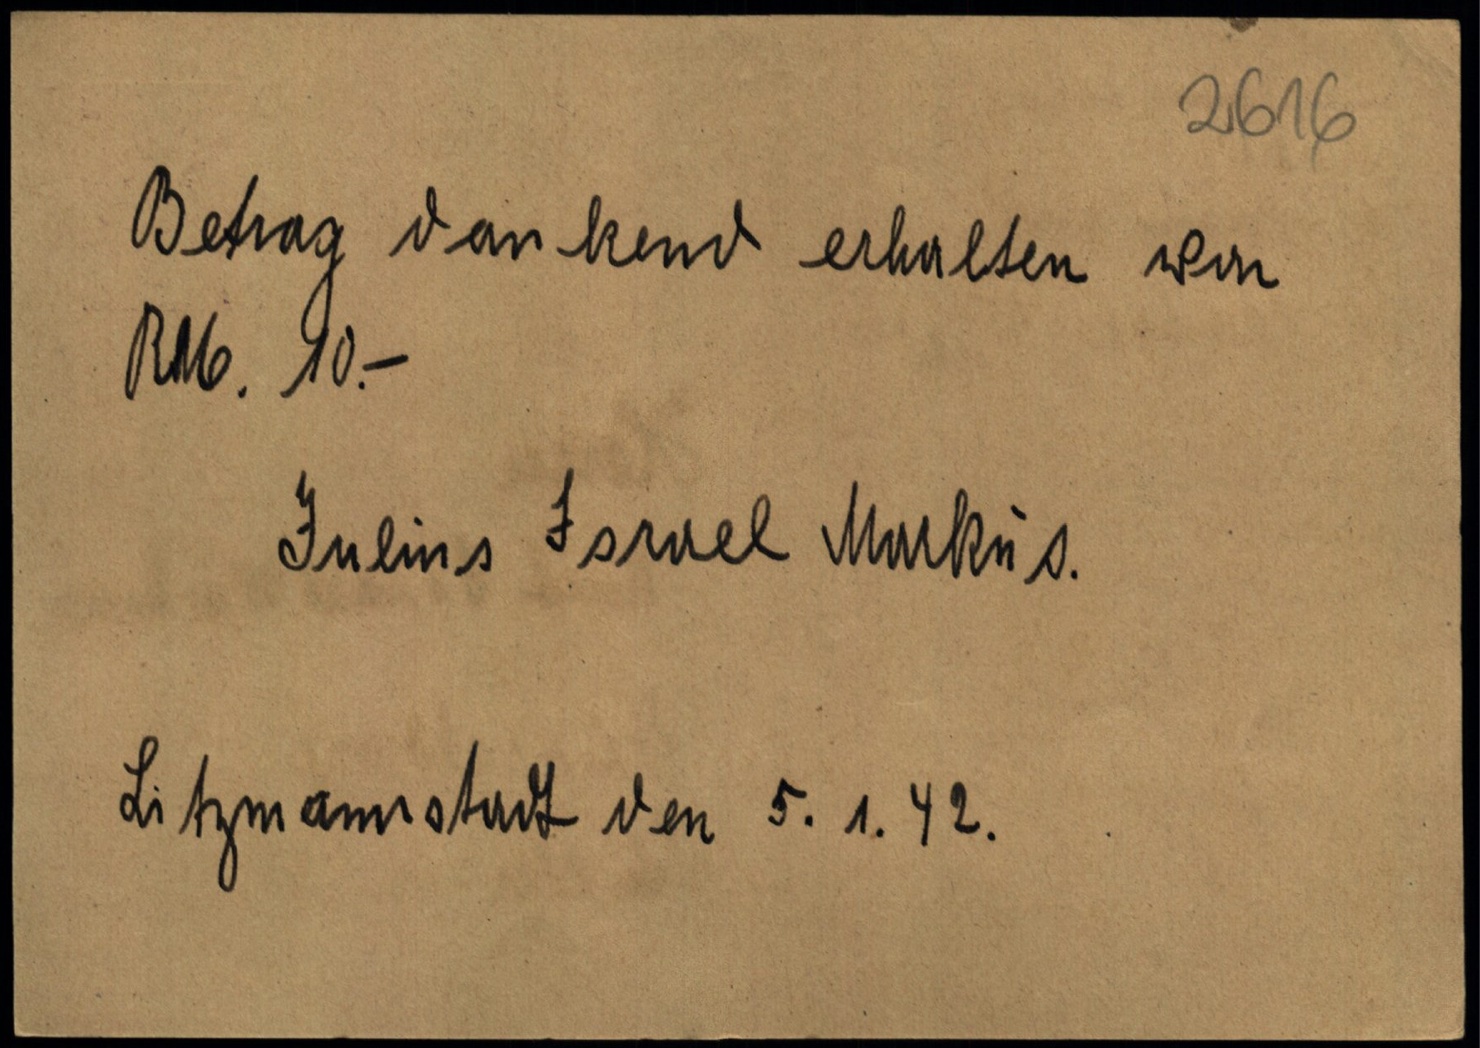 2616
Betrag dankend erhalten von
RM. 10.-
Julius Israel Markus.
Litzmannstadt den 5. 1. 42.